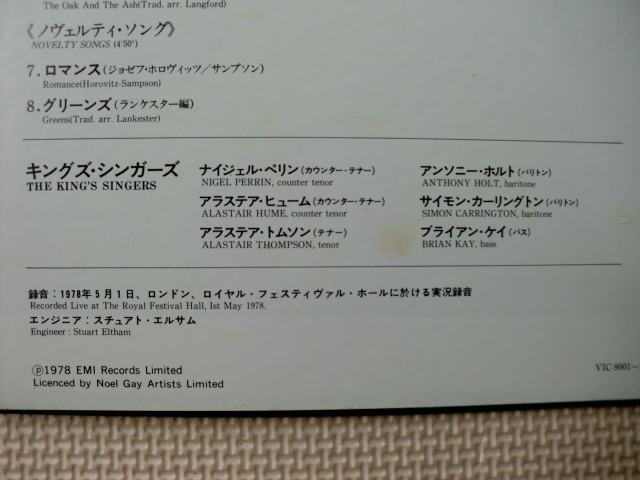 The Oak And The Ash(Trad. arr. Langford)
《ノヴェルティ・ソング》
NOVELTY SONGS (4'50")
7.ロマンス(ジョゼフ・ホロヴィッツ/サンプソン)
Romance(Horovitz-Sampson)
8.グリーンズ(ランケスター編)
Greens(Trad. arr. Lankester)
キングズ・シンガーズ
THE KING'S SINGERS
ナイジェル・ペリン(カウンター・テナー)
NIGEL PERRIN, counter tenor
アラステア・ヒューム(カウンター・テナー)
ALASTAIR HUME, counter tenor
アラステア・トムソン(テナー)
ALASTAIR THOMPSON, tenor
アンソニー・ホルト(バリトン)
ANTHONY HOLT, baritone
サイモン・カーリングトン(バリトン)
SIMON CARRINGTON, baritone
ブライアン・ケイ(バス)
BRIAN KAY, bass
録音:1978年5月1日、ロンドン、ロイヤル・フェスティヴァル・ホールに於ける実況録音
Recorded Live at The Royal Festival Hall, 1st May 1978.
エンジニア:スチュアト・エルサム
Engineer : Stuart Eltham
Ⓟ1978 EMI Records Limited
Licenced by Noel Gay Artists Limited
VIC-9001~